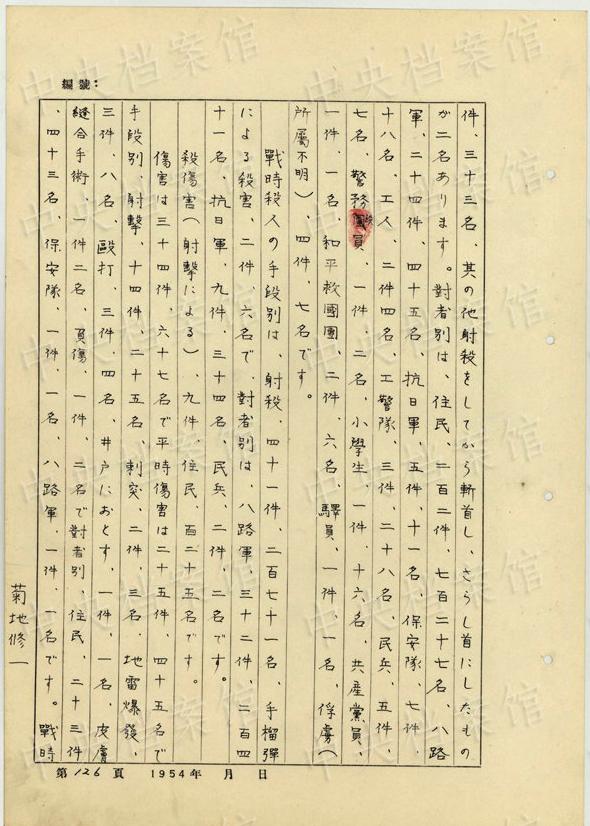 編號：
件、三十三名、其の他射殺をしてから斬首し、さらし首にしたもの
が二名あります。對者別は、住民、二百二件、七百二十七名、八路
軍、二十四件、四十五名、抗日軍、五件、十一名、保安隊、七件、
十八名、工人、二件四名、工警隊、三件、二十八名、民兵、五件、
七名、警務員、一件、二名、小學生、一件、十六名、共産黨員、
一件、一名、和平救國團、二件、六名、驛員、一件、一名、俘虜(
所屬不明)、四件、七名です。
戰時殺人の手段別は、射殺、四十一件、二百七十一名、手榴彈
による殺害、二件、六名で、對者別は、八路軍、三十二件、二百四
十一名、抗日軍、九件、三十四名、民兵、二件、二名です。
殺傷害(射擊による)、九件、住民、百二十五名です。
傷害は三十四件、六十七名で平時傷害は二十五件、四十五名で
手段別、射擊、十四件、二十五名、刺突、二件、三名、地雷爆發、
三件、八名、毆打、三件、四名 井戸におとす、一件、一名、皮膚
縫合手術、一件二名、負傷、一件、二名で對者別、住民、二十三件
、四十三名、保安隊、一件、一名、八路軍、一件、一名です。戰時
菊地修一
第126頁 1954年 月 日
中央档案馆